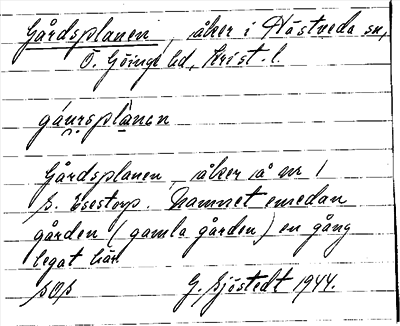 Gårdsplanen, åker i Hästveda sn,
Ö. Göinge hd, Krist. l.
gáursplànen
Gårdsplanen, åker å nr 1
s. Esestorp. Namnet emedan
gården (gamla gården) en gång
legat här.
G. Sjöstedt 1944.